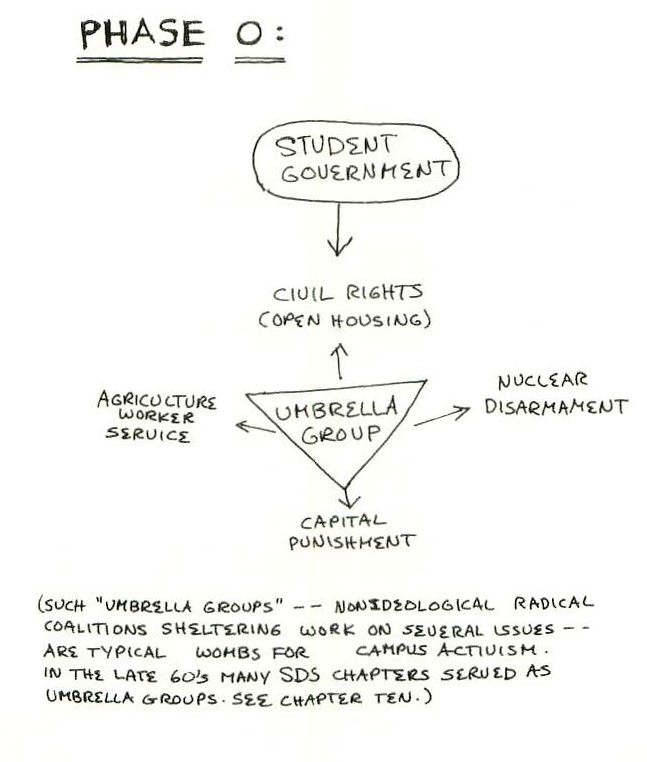 PHASE 0:
STUDENT
GOVERNMENT
CIVIL RIGHTS
(OPEN HOUSING)
AGRICULTURE
WORKER
SERVICE
UMBRELLA
GROUP
NUCLEAR
DISARMAMENT
CAPITAL
PUNISHMENT
(SUCH "UMBRELLA GROUPS" -- NONIDEOLOGICAL RADICAL
COALITIONS SHELTERING WORK ON SEVERAL ISSUES --
ARE TYPICAL WOMBS FOR CAMPUS ACTIVISM.
IN THE LATE 60's MANY SDS CHAPTERS SERVED AS
UMBRELLA GROUPS. SEE CHAPTER TEN.)